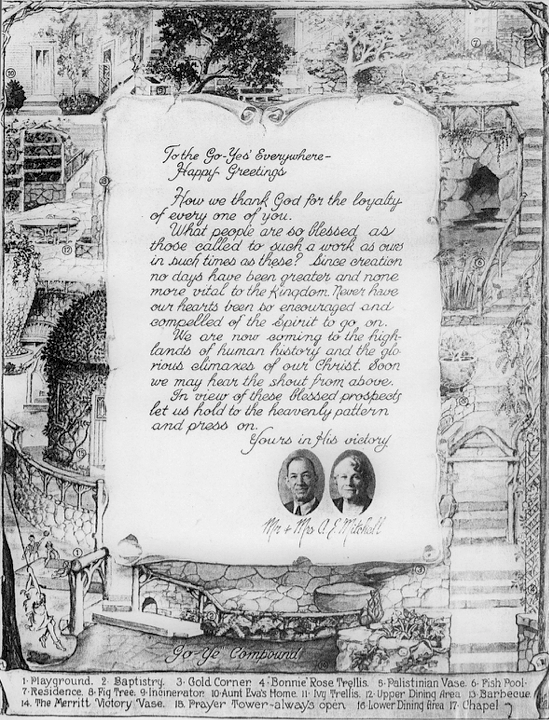 To the Go-Yes' Everywhere-
Happy Greetings
How we thank God for the loyalty
of every one of you.
What people are so blessed as
those called to such a work as ours
in such times as these? Since creation
no days have been greater and none
more vital to the Kingdom. Never have
our hearts been so encouraged and
compelled of the Spirit to go on.
We are now coming to the high-
lands of human history and the glo-
rious climaxes of our Christ. Soon
we may hear the shout from above.
In view of these blessed prospects
let us hold to the heavenly pattern
and press on.
Yours in His victory
Mr + Mrs A. E. Mitchell
Go-Ye Compound
1- Playground. 2- Baptistry. 3- Gold Corner 4- "Bonnie" Rose Trellis. 5- Palistinian Vase. 6- Fish Pool-
7- Residence. 8- Fig Tree. 9- Incinerator 10- Aunt Eva's Home. 11- Ivy Trellis. 12- Upper Dining Area 13- Barbecue
14. The Merritt Victory Vase. 15. Prayer Tower-always open 16- Lower Dining Area 17- Chapel